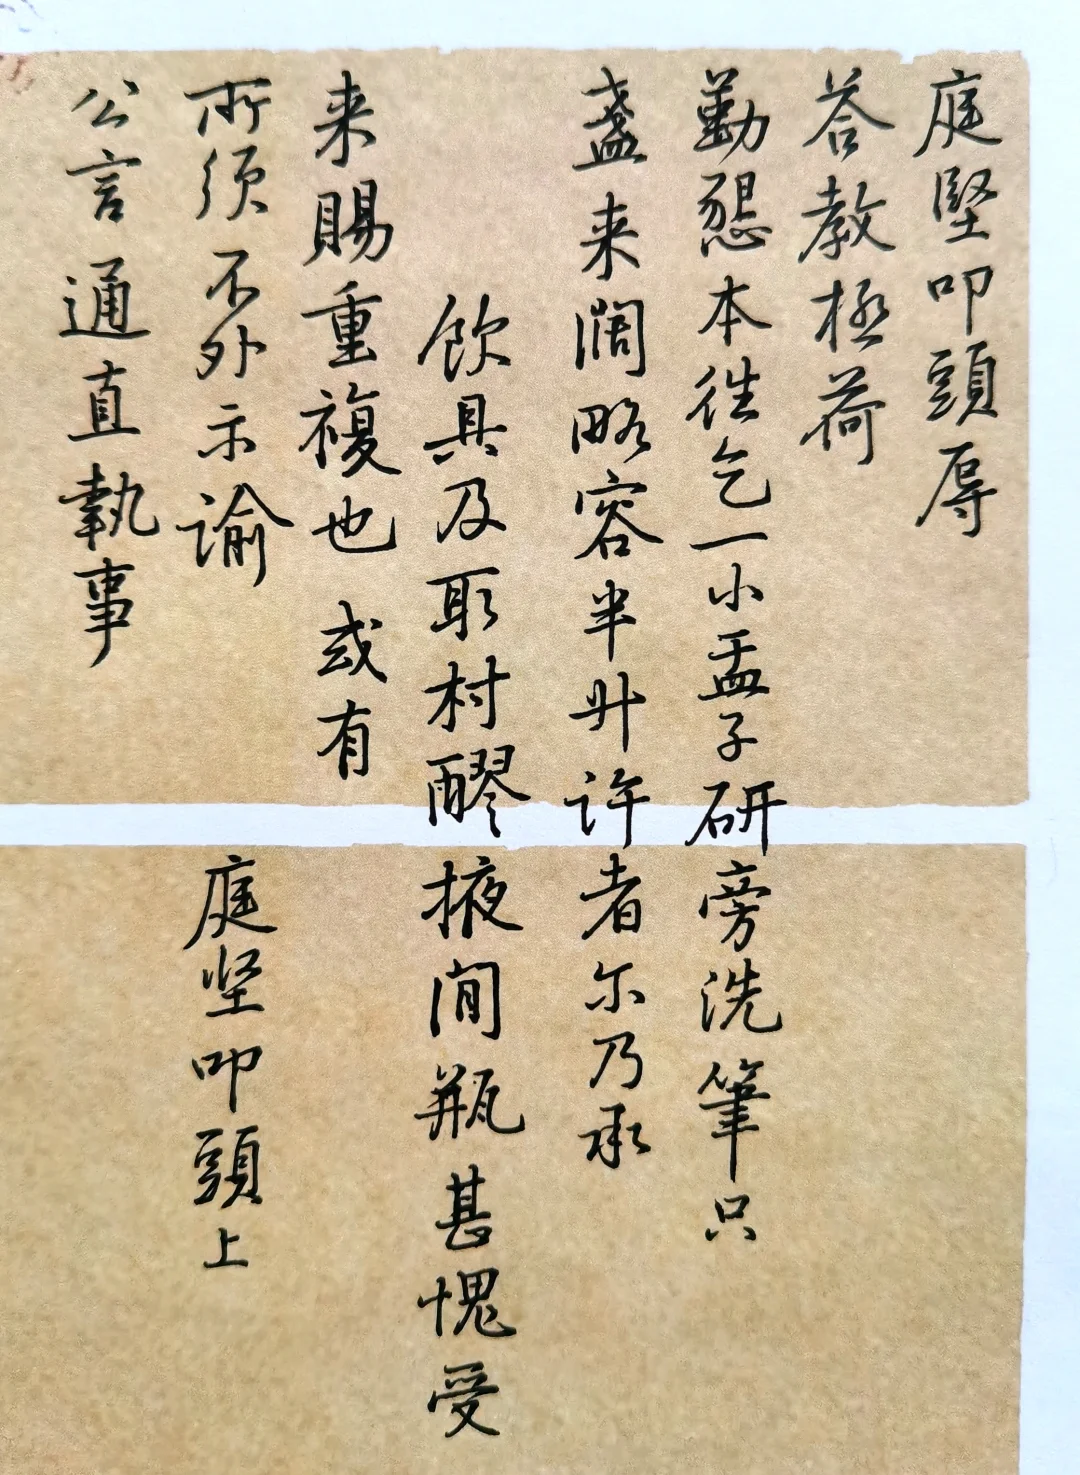 庭堅叩頭辱
答教極荷
勤懇本徃乞一小盂子研旁洗筆只
盞来闊略容半升許者尓乃承
飲具及取村醪掖间瓶甚愧受
来賜重複也或有
所须不外示谕
庭坚叩頭上
公言通直執事